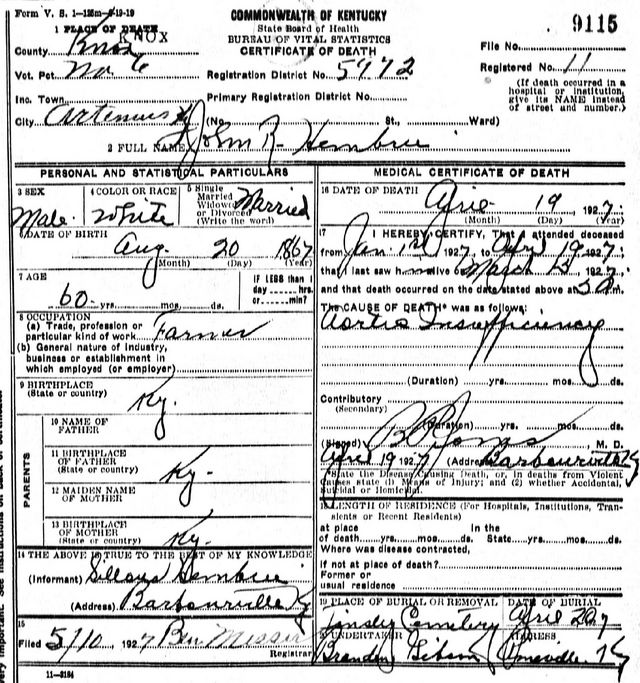 Form V. S. 1—125m—8-19-19
COMMONWEALTH OF KENTUCKY
State Board of Health
BUREAU OF VITAL STATISTICS
CERTIFICATE OF DEATH
9115
1 PLACE OF DEATH
KNOX
County Knox
File No.
Vot. Pct. No 6
Registration District No. 5972
Registered No. 11
(If death occurred in a hospital or institution, give its NAME instead of street and number.)
Inc. Town
Primary Registration District No.
City Artemus Ky
(No. St., Ward)
2 FULL NAME John R. Hembree
PERSONAL AND STATISTICAL PARTICULARS
3 SEX Male
4 COLOR OR RACE White
5 Single Married Widowed or Divorced (Write the word) Married
6 DATE OF BIRTH
Aug 20 1867
(Month) (Day) (Year)
7 AGE
60 yrs. mos. ds.
IF LESS than 1 day hrs. or min?
8 OCCUPATION
(a) Trade, profession or particular kind of work Farmer
(b) General nature of industry, business or establishment in which employed (or employer)
9 BIRTHPLACE
(State or country) Ky.
PARENTS
10 NAME OF FATHER
11 BIRTHPLACE OF FATHER
(State or country) Ky.
12 MAIDEN NAME OF MOTHER
13 BIRTHPLACE OF MOTHER
(State or country) Ky.
14 THE ABOVE IS TRUE TO THE BEST OF MY KNOWLEDGE
(Informant) Hembree
(Address) Barbourville Ky
15
Filed 5/10 1927 Ben Messer
Registrar
11—3184
MEDICAL CERTIFICATE OF DEATH
16 DATE OF DEATH
19 1927
(Month) (Day) (Year)
17 I HEREBY CERTIFY, That I attended deceased
from Jan. 1st 1927 to April 19 1927
that I last saw him alive on March 15 1927
and that death occurred on the date stated above at m.
The CAUSE OF DEATH* was as follows:
Aortic Insufficiency
(Duration) yrs. mos. ds.
Contributory
(Secondary)
(Duration) yrs. mos. ds.
(Signed) M. D.
April 19 1927 (Address) Barbourville Ky
*State the Disease Causing Death, or, in deaths from Violent Causes state (1) Means of Injury; and (2) whether Accidental, Suicidal or Homicidal.
18 LENGTH OF RESIDENCE (For Hospitals, Institutions, Transients or Recent Residents)
at place of death yrs. mos. ds. In the State yrs. mos. ds.
Where was disease contracted,
if not at place of death?
Former or usual residence
19 PLACE OF BURIAL OR REMOVAL
Tinsley Cemetery
DATE OF BURIAL
April 20 7
20 UNDERTAKER
Gibson
ADDRESS
Pineville Ky